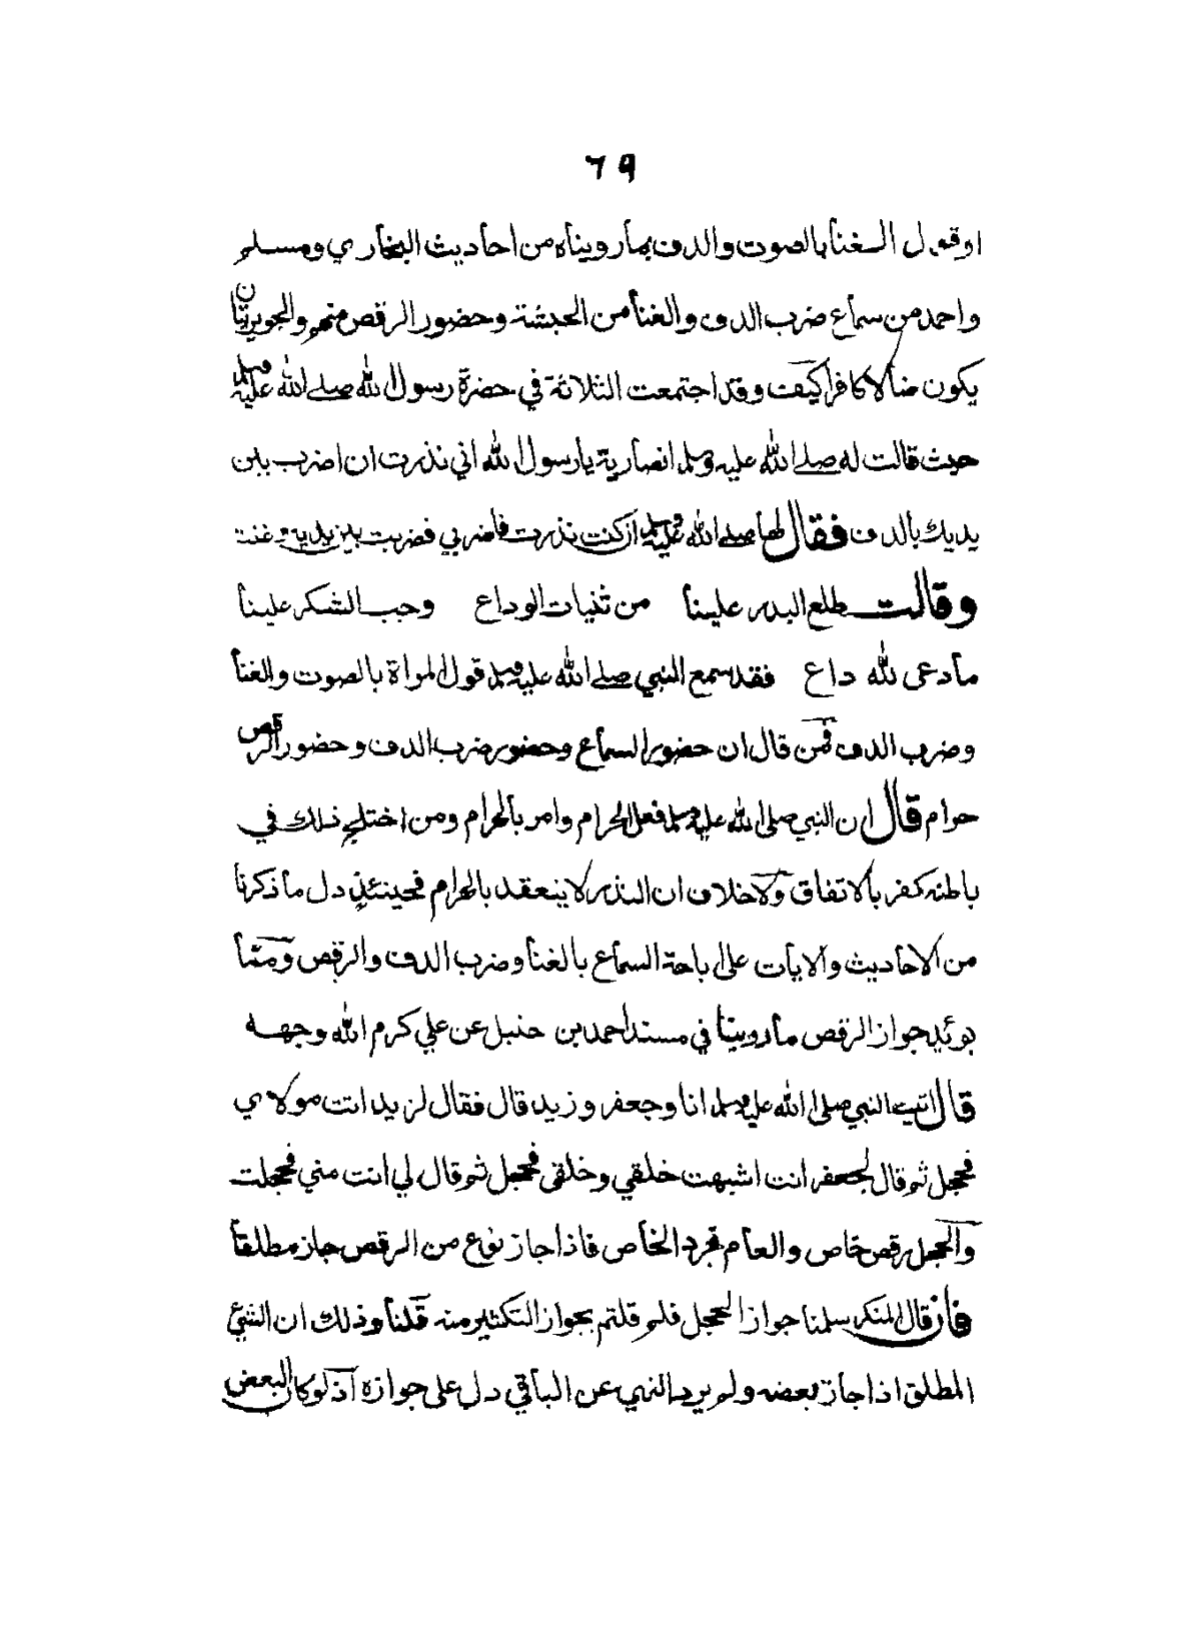 ٦٩
او قول الغنا بالصوت والدف بما رويناه من احاديث البخاري ومسلم
واحمد من سماع ضرب الدف والغنا من الحبشة وحضور الرقص منهم والجويريتان
يكون ضالا كافرا كيف وقد اجتمعت الثلاثة في حضرة رسول الله صلى الله عليه وسلم
حيث قالت له صلى الله عليه وسلم انصارية يا رسول الله اني نذرت ان اضرب بين
يديك بالدف فقال لها صلى الله عليه وسلم ان كنت نذرت فاضربي فضربت بين يديه وغنت
وقالت طلع البدر علينا من ثنيات الوداع وجب الشكر علينا
ما دعى لله داع فقد سمع النبي صلى الله عليه وسلم قول المراة بالصوت والغنا
وضرب الدف فمن قال ان حضور السماع وحضور ضرب الدف وحضور الرقص
حرام قال ان النبي صلى الله عليه وسلم فعل الحرام وامر بالحرام ومن اختلج ذلك في
باطنه كفر بالاتفاق ولا خلاف ان النذر لا ينعقد بالحرام فحينئذ دل ما ذكرنا
من الاحاديث والايات على اباحة السماع بالغنا وضرب الدف والرقص ومما
يوئيد جواز الرقص ما روينا في مسند احمد بن حنبل عن علي كرم الله وجهه
قال اتيت النبي صلى الله عليه وسلم انا وجعفر وزيد قال فقال لزيد انت مولاي
فحجل ثم قال لجعفر انت اشبهت خلقي وخلقى فحجل ثم قال لي انت مني فحجلت
والحجل رقص خاص والعام فجرد الخاص فاذا جاز نوع من الرقص جاز مطلقا
فان قال المنكر سلمنا جواز الحجل فلم قلتم بجواز التكثير منه قلنا وذلك ان الشئ
المطلق اذا جاز بعضه ولم يرد النهي عن الباقي دل على جوازه اذ لو كان البعض